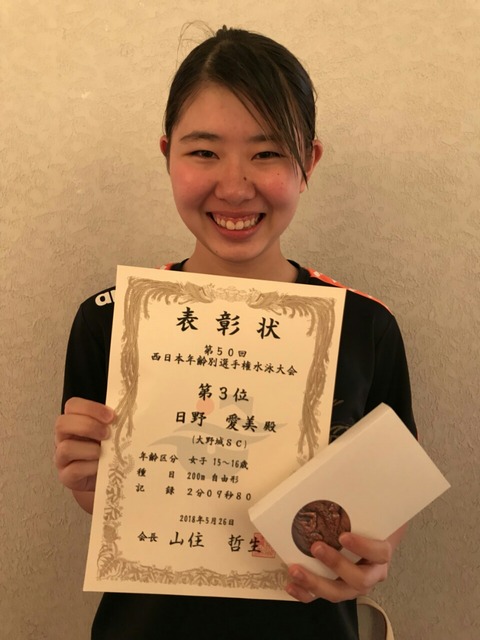 表彰状
第50回
西日本年齢別選手権水泳大会
第3位
日野 愛美殿
(大野城SC)
年齢区分 女子 15~16歳
種目 200m 自由形
記録 2分07秒80
2018年5月26日
会長 山住 哲生